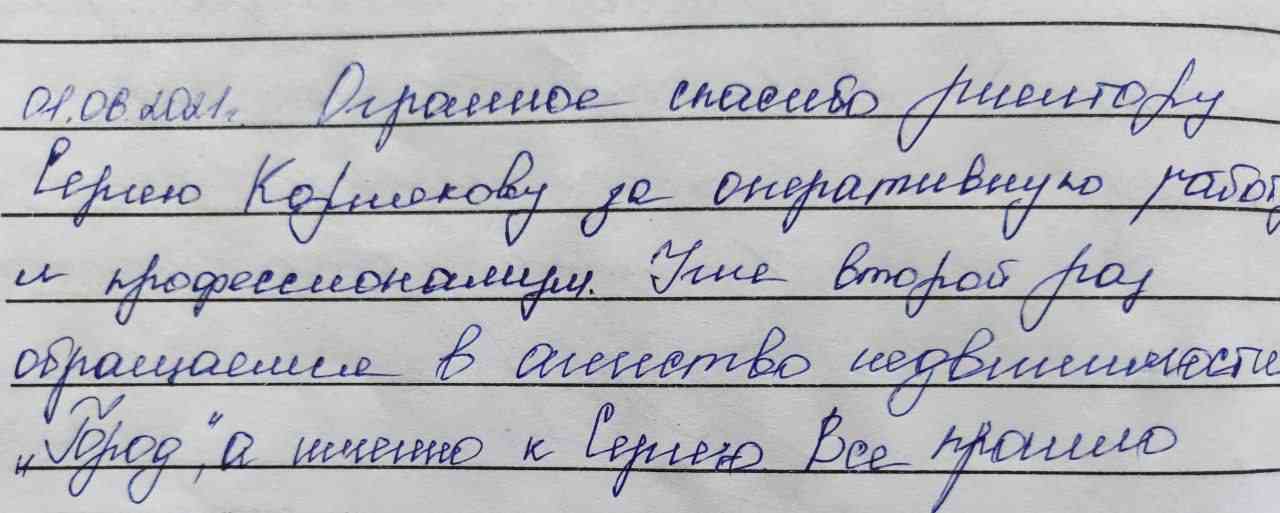 01.08.2021г. Огромное спасибо риелтору
Сергею Корнякову за оперативную работу
и профессионализм. Уже второй раз
обращаемся в агенство недвижимости
„Город", а именно к Сергею. Все прошло